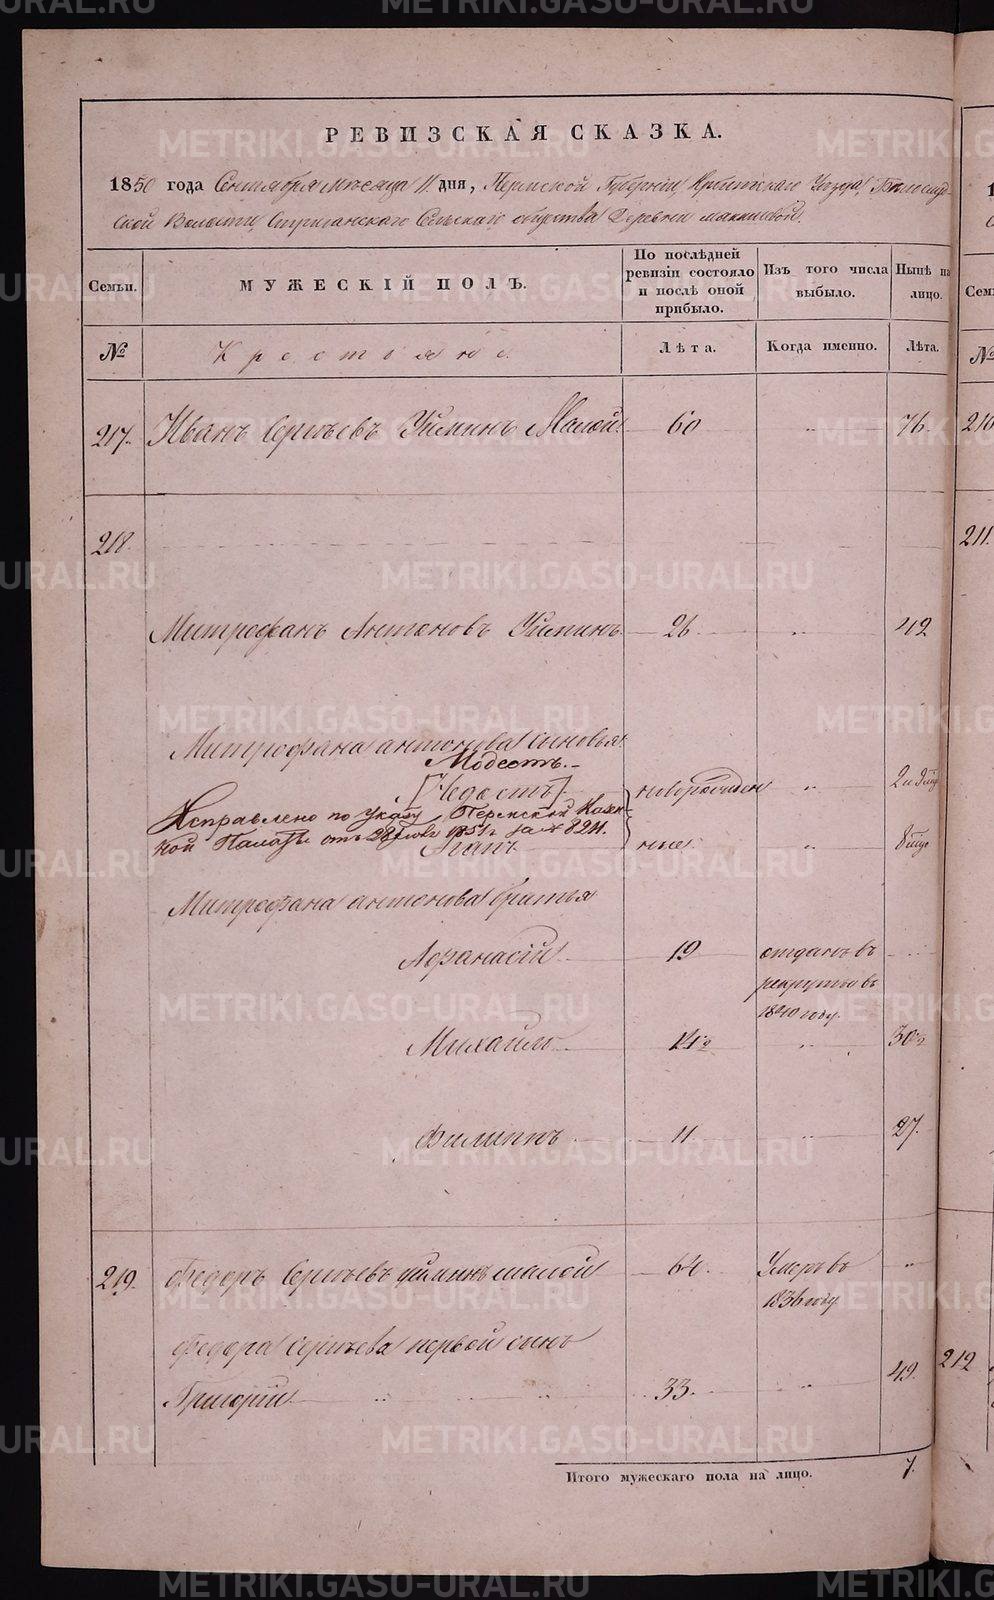 РЕВИЗСКАЯ СКАЗКА.
1850 года Сентября месяца 11 дня, Пермской Губернии Ирбитскаго Уезда, Белослуд-
ской Волости, Стриганскаго Сельскаго общества Деревни
Семьи.
МУЖЕСКІЙ ПОЛЪ.
По послѣдней ревизіи состояло и послѣ оной прибыло.
Изъ того числа выбыло.
Нынѣ на лицо.
№
Крестьяне.
Лѣта.
Когда именно.
Лѣта.
217. Иванъ Сергѣевъ Уйминъ Малой 60 " 76.
218.
Митрофанъ Антоновъ Уйминъ 26 " 42
Митрофана Антонова сыновья:
Модестъ.
[Недостъ] новорожден " 2 и 9 мѣс
Исправлено по указу Пермской Казен
ной Палаты отъ 28 1851 г. за № 8211.
ные " 8 мѣс
Митрофана Антонова братья
Афанасій 19 отданъ въ
рекруты въ
1840 году.
Михайло 14 ½ " 30 ½
Филиппъ 11 " 27.
219. Федоръ Сергѣевъ Уйминъ малой 64. Умеръ въ "
1836 году.
Федора Сергѣева первой сынъ
Григорій " " 33. " 49.
Итого мужескаго пола на лицо. 7.
210
211.
212
METRIKI.GASO-URAL.RU